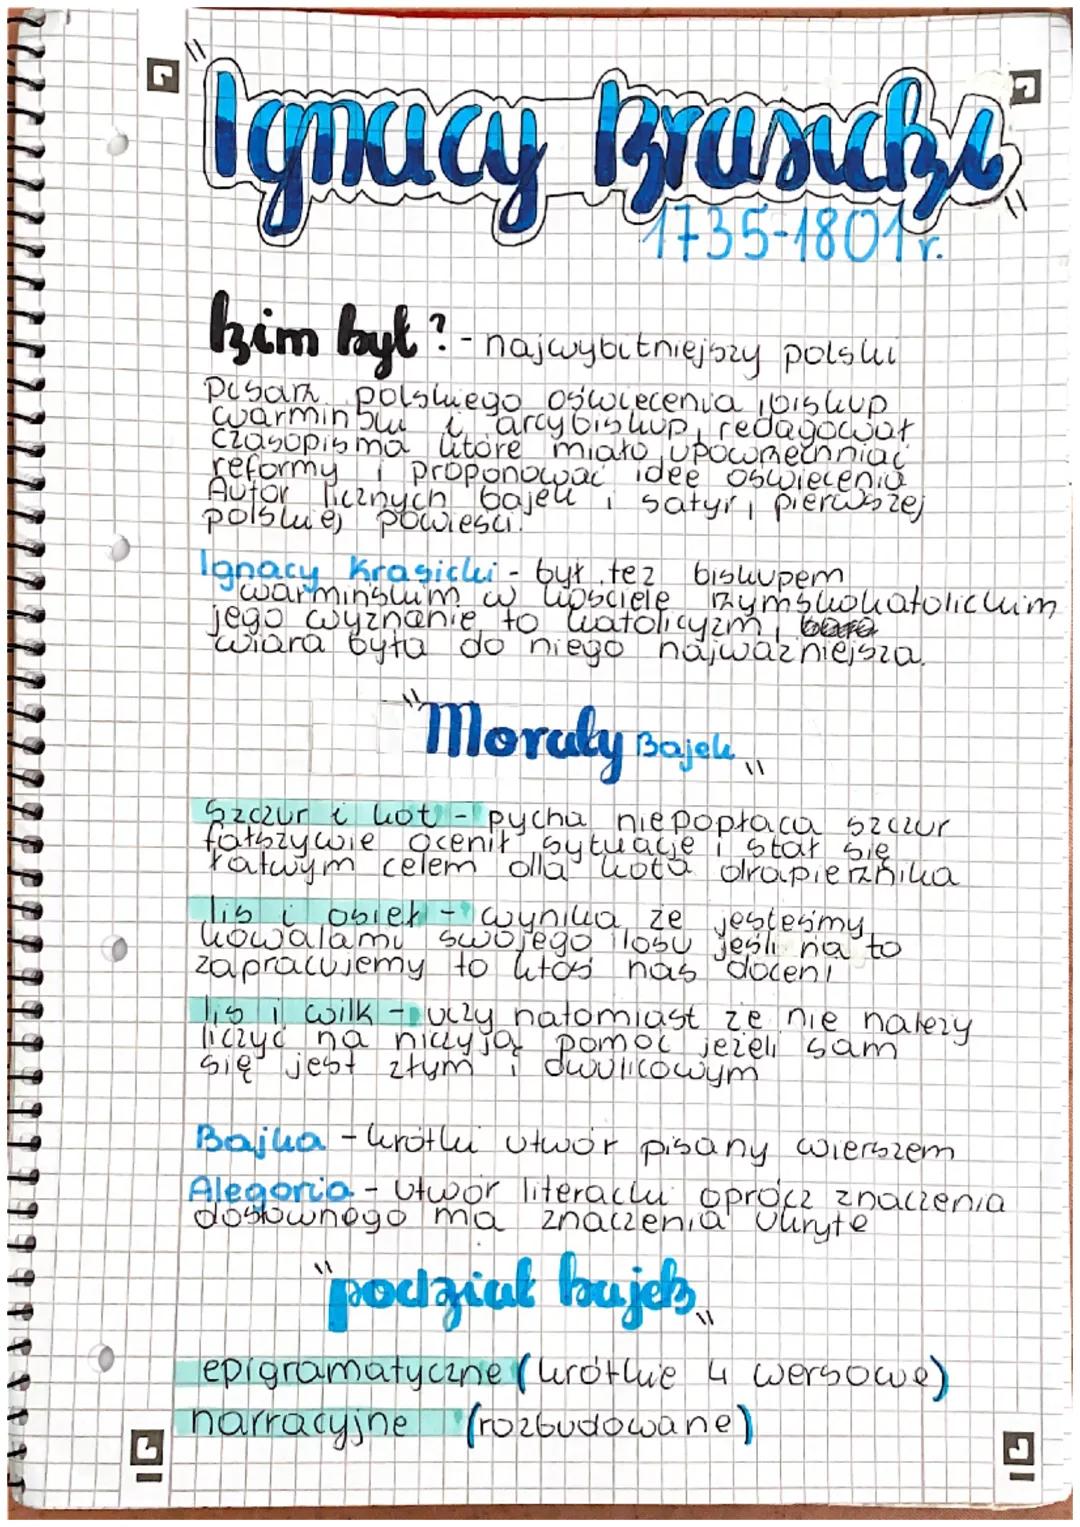 "Ignacy Krasicki"
1735-1801 r.
kim był? - najwybitniejszy polski
pisarz polskiego oświecenia, biskup
warmiński i arcybiskup, redagował
czasopisma które miało upowrzechniać
reformy i proponować idee oświecenia
Autor licznych bajek i satyr, pierwszej
polskiej powieści.
Ignacy Krasicki - był też biskupem
warmińskim w kościele rzymskokatolickim
jego wyznanie to katolicyzm,
wiara była do niego najważniejsza.
"Morały Bajek"
Szczur i kot - pycha niepopłaca szczur
fałszywie ocenił sytuację i stał się
łatwym celem dla kota drapieżnika
lis i osieł - wynika że jesteśmy
kowalami swojego losu jeśli na to
zapracujemy to ktoś nas doceni
lis i wilk - uczy natomiast że nie należy
liczyć na niczyją pomoc jeżeli sam
się jest złym i dwulicowym
Bajka - krótki utwór pisany wierszem
Alegoria - utwór literacki oprócz znaczenia
dosownego ma znaczenia ukryte
"podział bajek"
epigramatyczne (krótkie 4 wersowe)
narracyjne (rozbudowane)